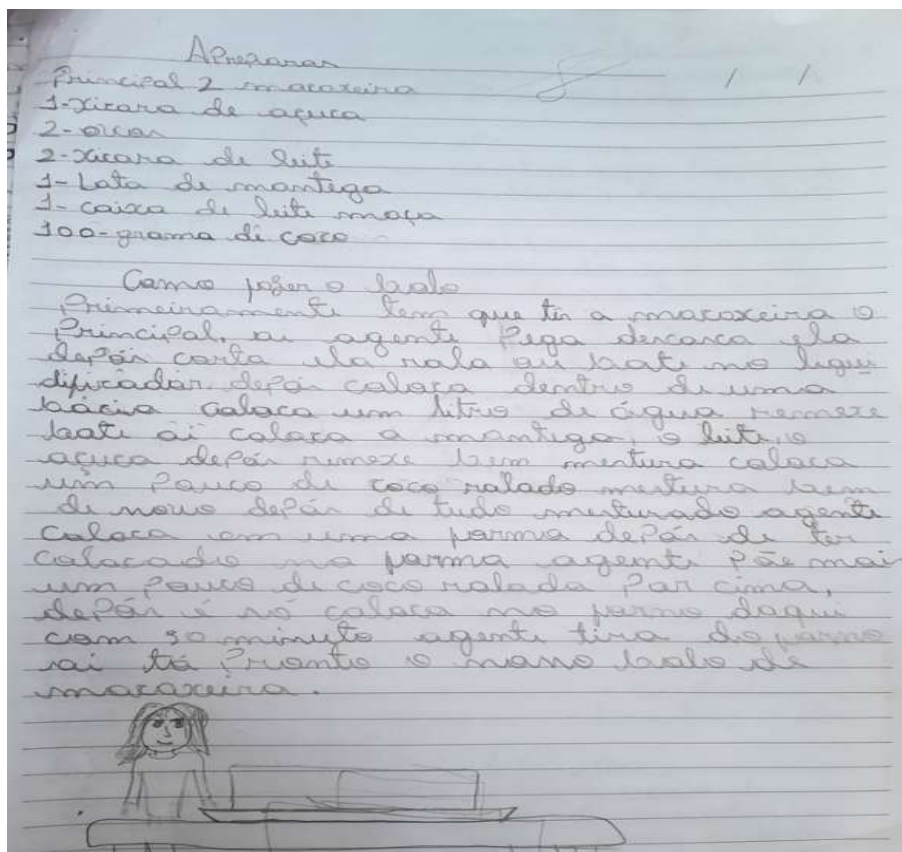 APreparar
Principal 2 macaxeira
1-xicara de açuca
2-
2-xicara de leite
1-Lata de mantega
1-caixa de leite moça
100-grama di coco
Como fazer o bolo
Primeiramenti tem que ter a macaxeira o
Principal. ai agenti Pega descasca ela
depós corta ela rala ou bati no liqui
dificador. depós coloca dentrio de uma
bácia coloca um litrio de água remexe
bati ai coloca a mantega, o leite, o
açuca depós rimexe bem mentura coloca
um Pouco di coco ralado mistura bem
di novo depós di tudo misturado agenti
coloca em uma forma depós di ter
colocadio na forma agenti Põe mai
um Pouco di coco ralado Por cima,
depós é só coloca no forno daqui
com 50 minuto agenti tira do forno
ai tá Prionto o noso bolo de
macaxeira.